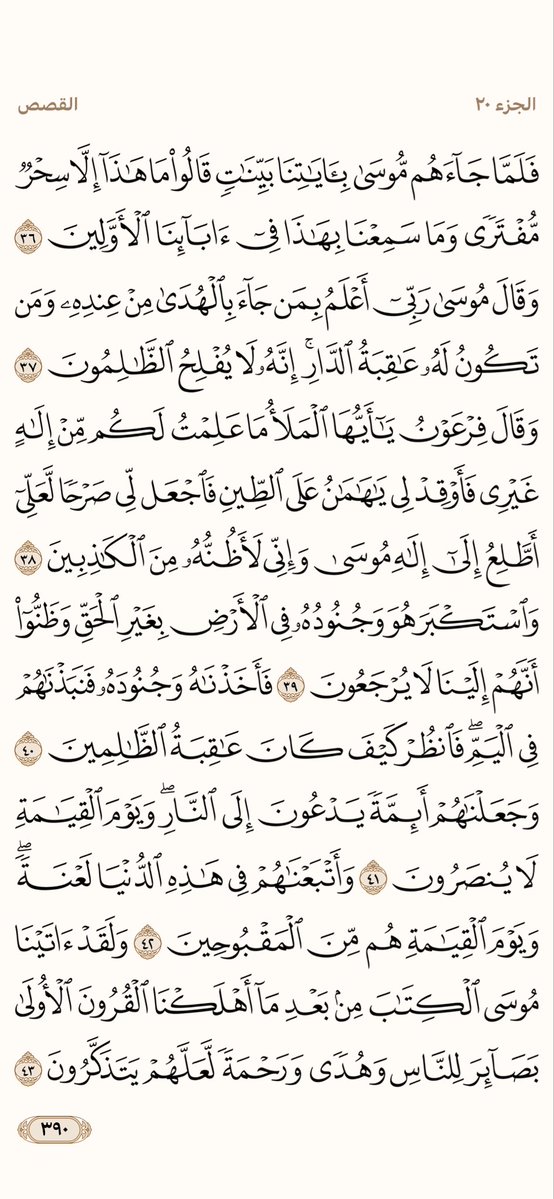 الجزء ٢٠
القصص
فَلَمَّا جَآءَهُم مُّوسَىٰ بِـَٔايَٰتِنَا بَيِّنَٰتٖ قَالُواْ مَا هَٰذَآ إِلَّا سِحۡرٞ
مُّفۡتَرٗى وَمَا سَمِعۡنَا بِهَٰذَا فِيٓ ءَابَآئِنَا ٱلۡأَوَّلِينَ ٣٦
وَقَالَ مُوسَىٰ رَبِّيٓ أَعۡلَمُ بِمَن جَآءَ بِٱلۡهُدَىٰ مِنۡ عِندِهِۦ وَمَن
تَكُونُ لَهُۥ عَٰقِبَةُ ٱلدَّارِۚ إِنَّهُۥ لَا يُفۡلِحُ ٱلظَّٰلِمُونَ ٣٧
وَقَالَ فِرۡعَوۡنُ يَٰٓأَيُّهَا ٱلۡمَلَأُ مَا عَلِمۡتُ لَكُم مِّنۡ إِلَٰهٍ
غَيۡرِي فَأَوۡقِدۡ لِي يَٰهَٰمَٰنُ عَلَى ٱلطِّينِ فَٱجۡعَل لِّي صَرۡحٗا لَّعَلِّيٓ
أَطَّلِعُ إِلَىٰٓ إِلَٰهِ مُوسَىٰ وَإِنِّي لَأَظُنُّهُۥ مِنَ ٱلۡكَٰذِبِينَ ٣٨
وَٱسۡتَكۡبَرَ هُوَ وَجُنُودُهُۥ فِي ٱلۡأَرۡضِ بِغَيۡرِ ٱلۡحَقِّ وَظَنُّوٓاْ
أَنَّهُمۡ إِلَيۡنَا لَا يُرۡجَعُونَ ٣٩ فَأَخَذۡنَٰهُ وَجُنُودَهُۥ فَنَبَذۡنَٰهُمۡ
فِي ٱلۡيَمِّۖ فَٱنظُرۡ كَيۡفَ كَانَ عَٰقِبَةُ ٱلظَّٰلِمِينَ ٤٠
وَجَعَلۡنَٰهُمۡ أَئِمَّةٗ يَدۡعُونَ إِلَى ٱلنَّارِۖ وَيَوۡمَ ٱلۡقِيَٰمَةِ
لَا يُنصَرُونَ ٤١ وَأَتۡبَعۡنَٰهُمۡ فِي هَٰذِهِ ٱلدُّنۡيَا لَعۡنَةٗۖ
وَيَوۡمَ ٱلۡقِيَٰمَةِ هُم مِّنَ ٱلۡمَقۡبُوحِينَ ٤٢ وَلَقَدۡ ءَاتَيۡنَا
مُوسَى ٱلۡكِتَٰبَ مِنۢ بَعۡدِ مَآ أَهۡلَكۡنَا ٱلۡقُرُونَ ٱلۡأُولَىٰ
بَصَآئِرَ لِلنَّاسِ وَهُدٗى وَرَحۡمَةٗ لَّعَلَّهُمۡ يَتَذَكَّرُونَ ٤٣
٣٩٠